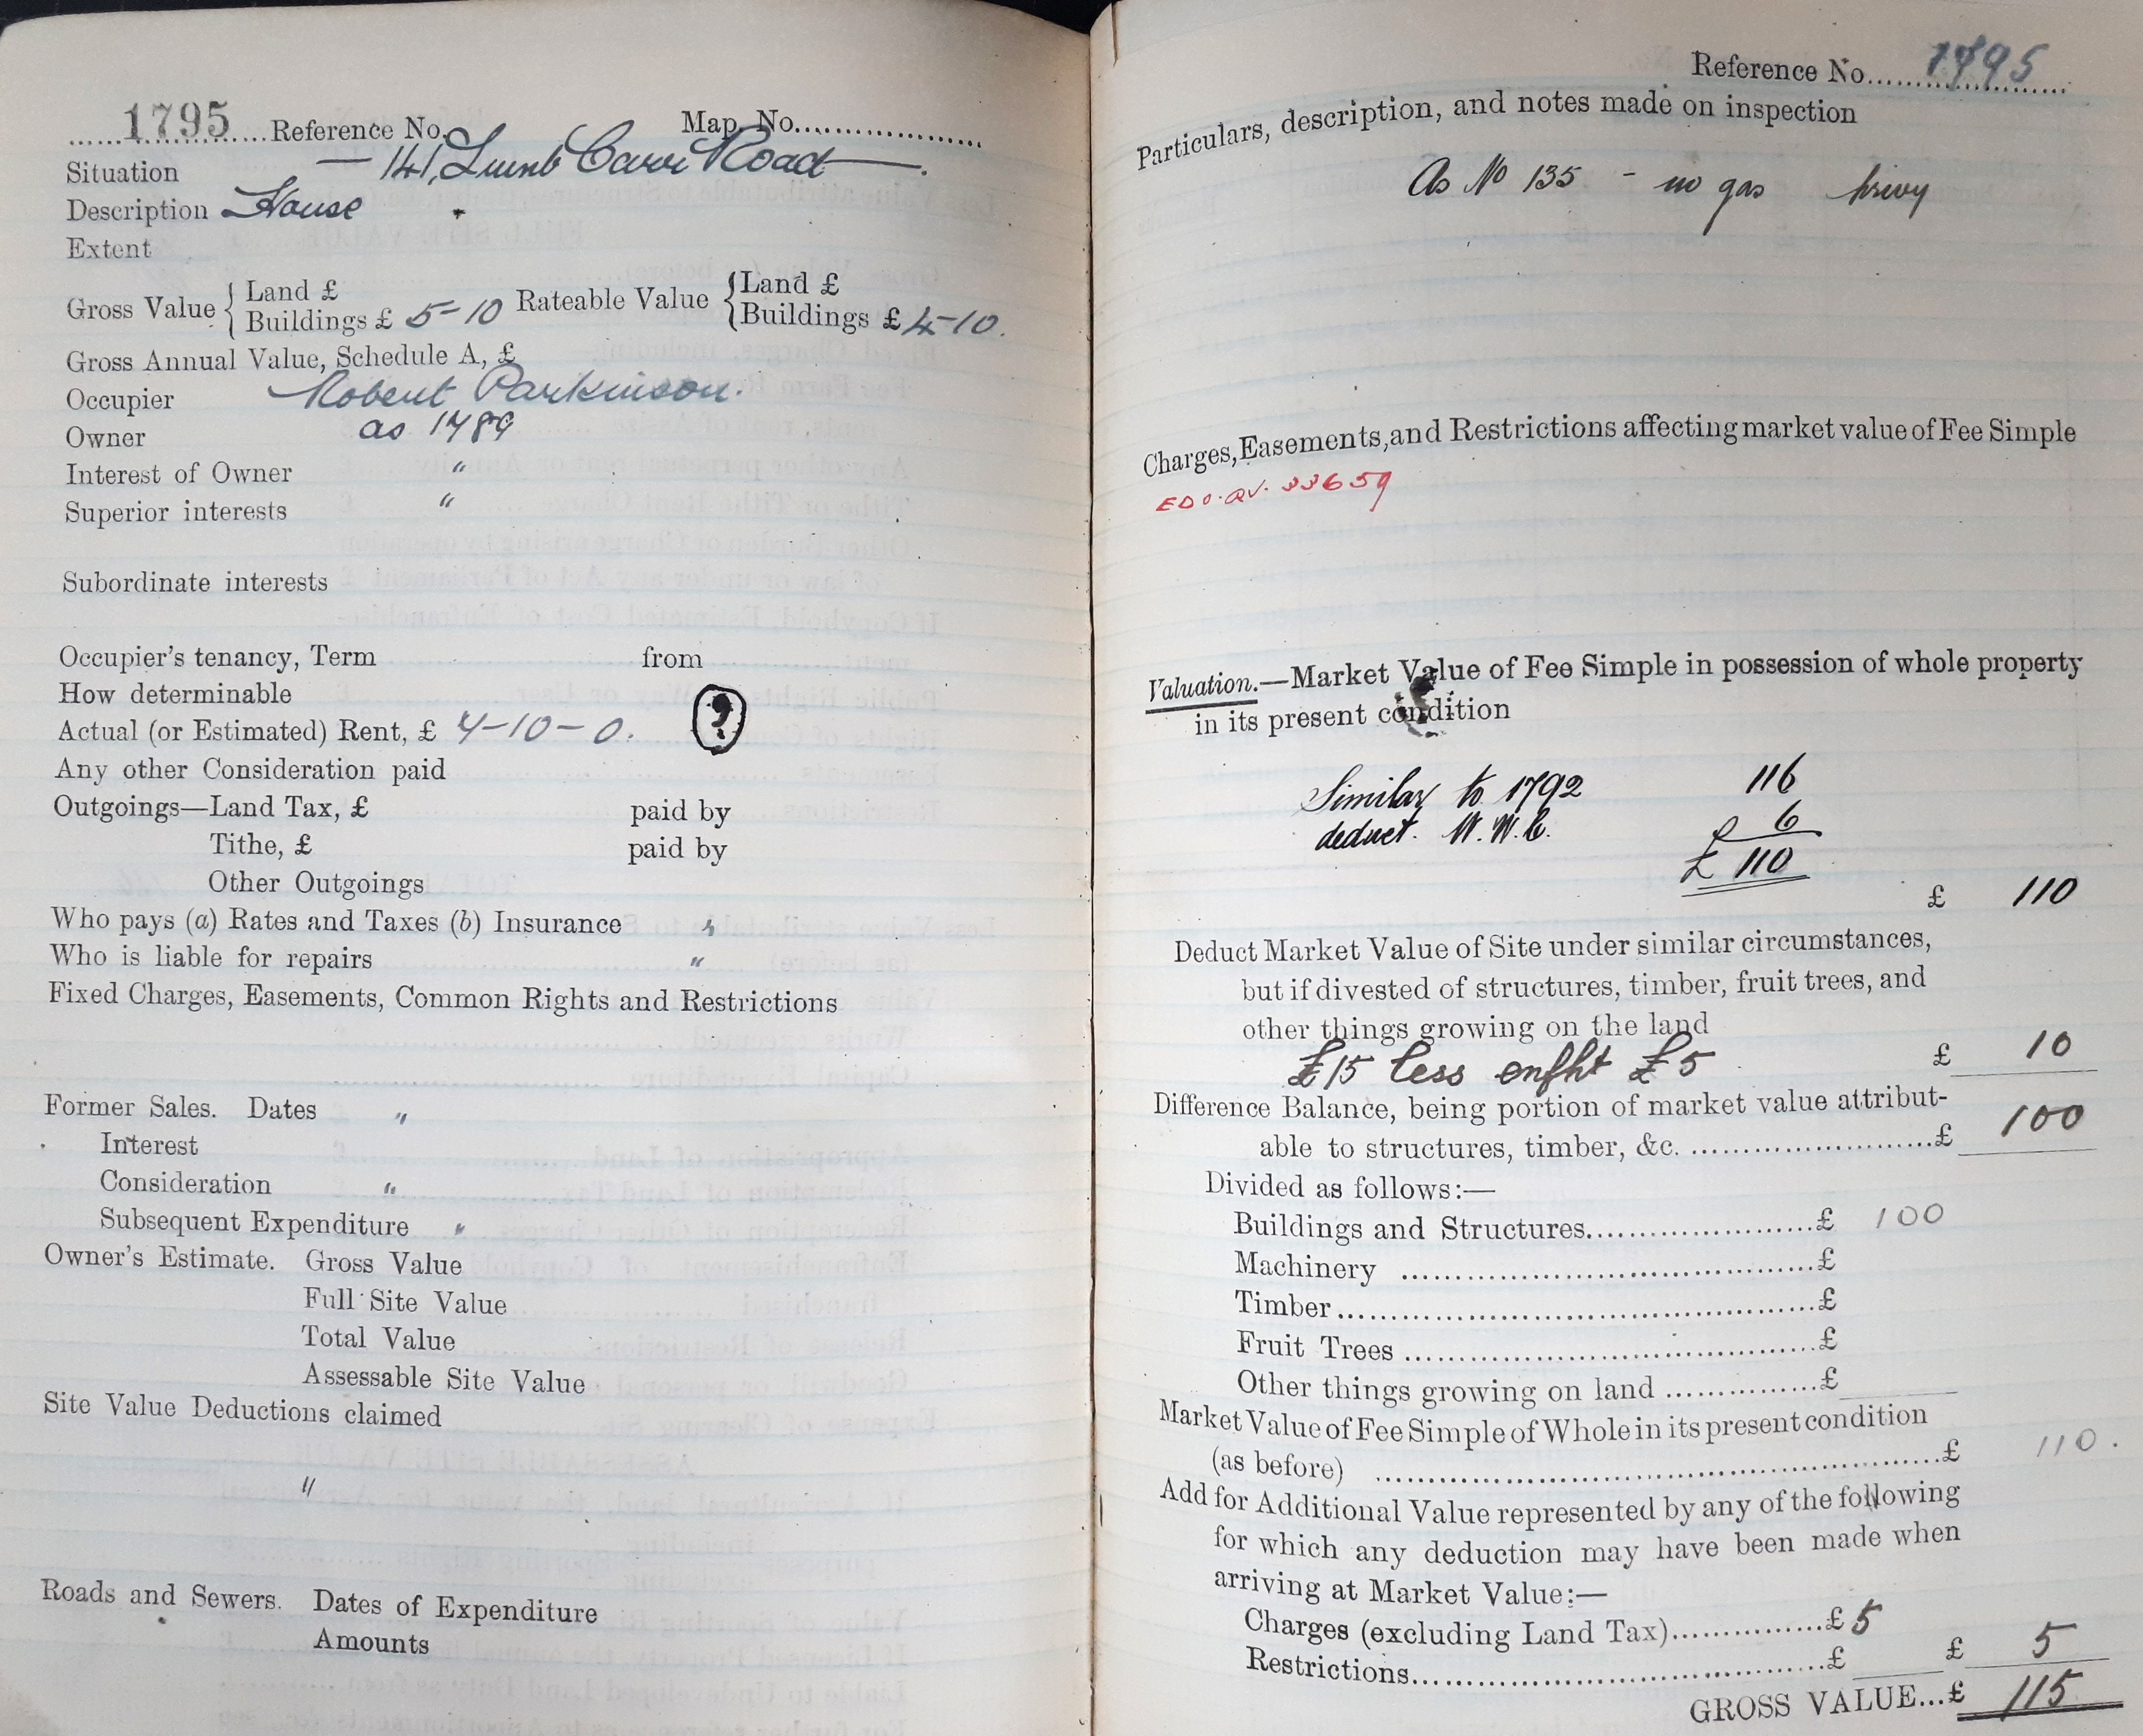 1795 Reference No. Map. No.
Situation — 141, Lumb Carr Road —.
Description House
Extent
Gross Value { Land £ Rateable Value { Land £
Buildings £ 5-10 Buildings £ 4-10.
Gross Annual Value, Schedule A, £
Occupier Robert Parkinson.
Owner as 1789
Interest of Owner "
Superior interests "
Subordinate interests
Occupier's tenancy, Term from
How determinable
Actual (or Estimated) Rent, £ 4-10-0. ?
Any other Consideration paid
Outgoings—Land Tax, £ paid by
Tithe, £ paid by
Other Outgoings
Who pays (a) Rates and Taxes (b) Insurance "
Who is liable for repairs "
Fixed Charges, Easements, Common Rights and Restrictions
Former Sales. Dates "
Interest
Consideration "
Subsequent Expenditure "
Owner's Estimate. Gross Value
Full Site Value
Total Value
Assessable Site Value
Site Value Deductions claimed
"
Roads and Sewers. Dates of Expenditure
Amounts
Reference No. 1795
Particulars, description, and notes made on inspection
As No 135 - no gas privy
Charges, Easements, and Restrictions affecting market value of Fee Simple
33659
Valuation.—Market Value of Fee Simple in possession of whole property
in its present condition
Similar to 1792 116
deduct. W.W.C. 6
£ 110
£ 110
Deduct Market Value of Site under similar circumstances,
but if divested of structures, timber, fruit trees, and
other things growing on the land
£15 less £5 £ 10
Difference Balance, being portion of market value attribut-
able to structures, timber, &c. £ 100
Divided as follows:—
Buildings and Structures £ 100
Machinery £
Timber £
Fruit Trees £
Other things growing on land £
Market Value of Fee Simple of Whole in its present condition
(as before) £ 110.
Add for Additional Value represented by any of the following
for which any deduction may have been made when
arriving at Market Value:—
Charges (excluding Land Tax) £ 5
Restrictions £ £ 5
GROSS VALUE...£ 115